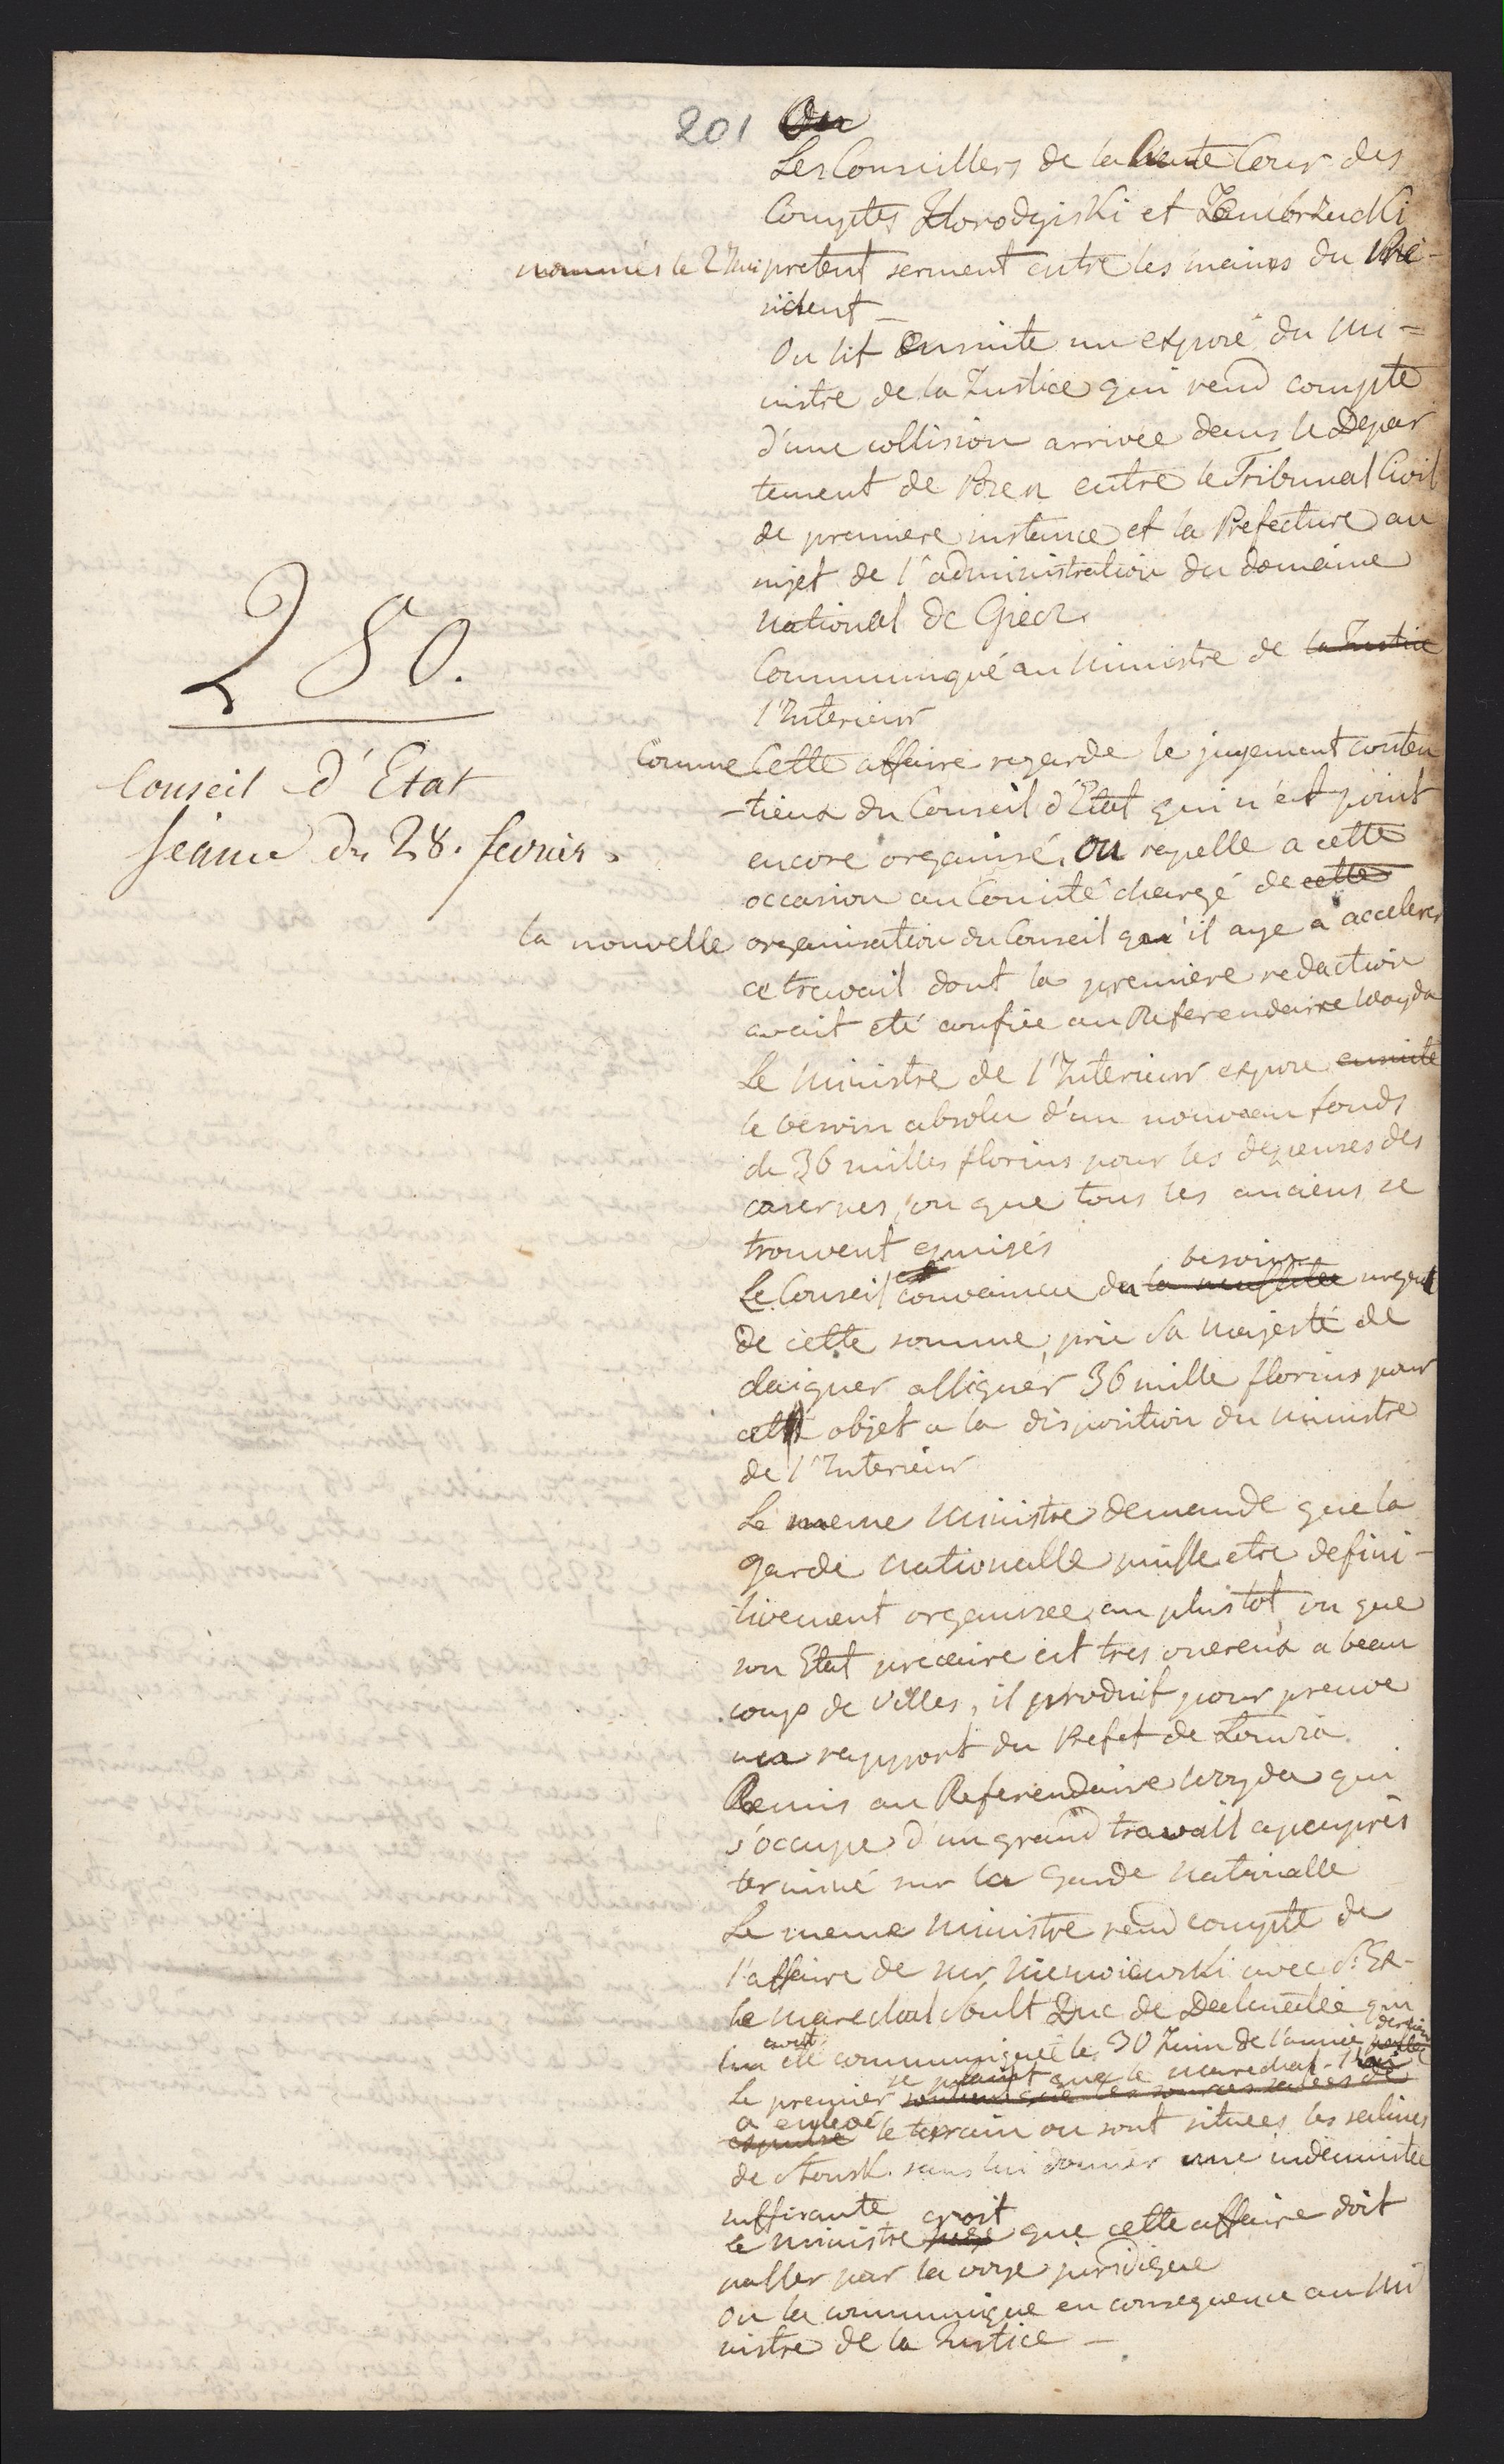 201
On
Les Conseillers de la haute Cour des
Comptes Horodyjski et Zembrzucki
nommés le 2 pretent serment entre les mains du Pré-
sident –
On lit ensuite un exposé du Mi-
nistre de la Justice qui rend compte
d'une collision arrivée dans le Depar
tement de Posen entre le Tribunal Civil
de premiere instance et la Prefecture au
sujet de l'administration du domaine
national de Giecz.
Communiqué au Ministre de la Justice
l'Interieur
280.
Conseil d'Etat
Séance du 28. fevrier.
Comme Cette affaire regarde le jugement conten
-tieux du Conseil d'Etat qui n'est point
encore organisé, on rapelle a cette
occasion au Comité chargé de cette
la nouvelle organisation du Conseil qu'il aye a accelerer
ce travail dont la premiere redaction
avait eté confiée au Referendaire Woyda
Le Ministre de l'Interieur expose ensuite
le besoin absolu d'un nouveau fonds
de 36 milles florins pour les depenses des
casernes, vu que tous les anciens se
trouvent epuisés
besoin
Le Conseil convaincu du la necessitée urgent
de cette somme, prie Sa Majesté de
daigner assigner 36 mille florins pour
cett objet a la disposition du Ministre
de l'Interieur
Le meme Ministre demande que la
garde nationalle puisse etre defini-
tivement organisée au plustot, vu que
son Etat precaire est tres onereux a beau
coup de villes, il produit pour preuve
un rapport du Prefet de Lomza.
Remis au Referendaire Woyda qui
s'occupe d'un grand travail apeuprès
terminé sur la Garde nationalle
Le meme Ministre rend compte de
l'affaire de Mr Niemoiewski avec S. Ex-
le Marechal Soult Duc de Dalmatie qui
avait derniere
lui eté communiquée le 30 Juin de l'année passée
se plaint que le marechal
Le premier soutient que les sources salées de
a enlevé
espulsé le terrain ou sont situees les salines
de Slonsk. sans lui donner une indemnitée
suffisante
croit
le Ministre juge que cette affaire doit
passer par la voye juridique
On la communique en consequence au Mi
nistre de la Justice –